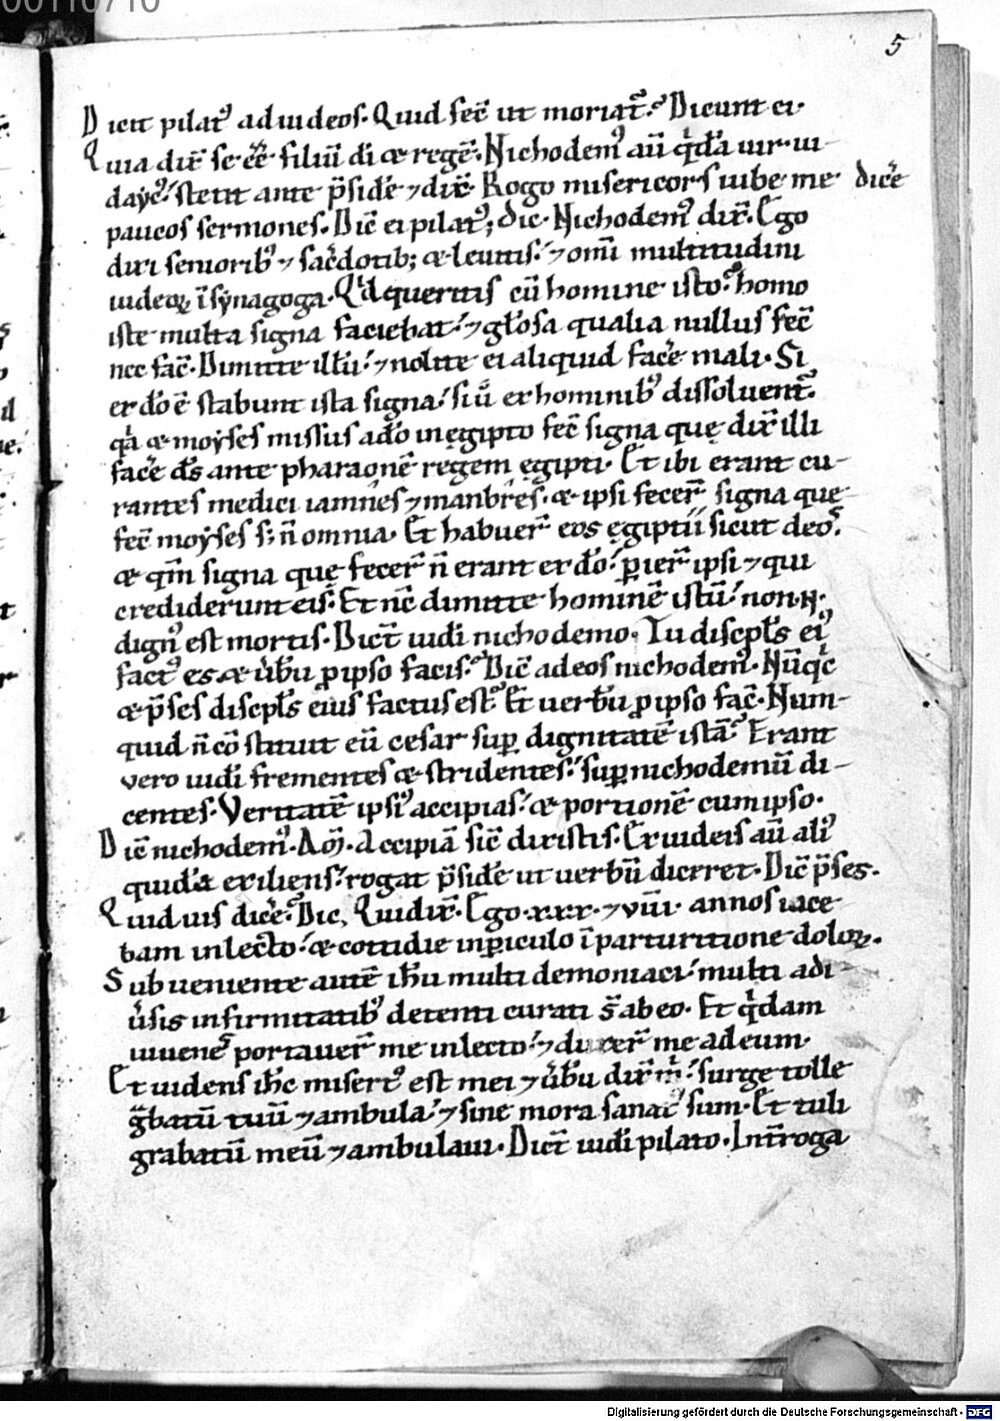 00110710
5
Dicit pilatꝰ ad iudeos. Quid fec̄ ut moriat̄. Dicunt ei.
Quia dix̄ se ēē filiū dī & regē. Nichodemꝰ aū qͥdā uir iu-
dayc̄ꝰ stetit ante p̄sidē ⁊ dix̄. Rogo misericors iube me dic̄e
paucos sermones. Dic̄ ei pilatꝰ; dic. Nichodemꝰ dix̄. Ego
dixi senioribꝰ ⁊ sac̄dotib; & leuitis. ⁊ om̄i multitudini
iudeoꝝ ī synagoga. Qͥd queritis cū homine isto. homo
iste multa signa faciebat. ⁊ gl̄osa qualia nullus fec̄
nec fac̄. Dimitte illū. ⁊ nolite ei aliquid fac̄e mali. Si
ex dō ē stabunt ista signa. si ū ex hominibꝰ dissoluent̄.
qͣ & moẏses missus a dō in ęgipto fec̄ signa quę dix̄ illi
fac̄e ds̄ ante pharaonē regem ęgipti. Et ibi erant cu-
rantes medici iamnes ⁊ manbres. & ipsi fecer̄ signa quę
fec̄ moẏses s; n̄ omnia. Et habuer̄ eos ęgiptii sicut deos.
& qm̄ signa quę fecer̄ n̄ erant ex dō. ꝑier̄ ipsi ⁊ qui
crediderunt eis. Et nc̄ dimitte hominē istū. non .N.
dignꝰ est mortis. Dict̄ iudi nichodemo. Tu discpl̄s eiꝰ
factꝰ es. & ūbū ꝓ ipso facis. Dic̄ ad eos nichodemꝰ. Nūqͥd
& p̄ses discpl̄s eius factus est. Et uerbū ꝓ ipso fac̄. Num-
quid n̄ cōstituit eū cesar suꝑ dignitatē istā. Erant
vero iudi frementes & stridentes. suꝑ nichodemū di-
centes. Veritatē ipsiꝰ accipias. & portionē cum ipso.
Dic̄ nichodemꝰ. Am̄. Accipiā sic̄ dixistis. Ex iudeis aū aliꝰ
quidā exiliens. rogat p̄sidē ut uerbū diceret. Dic̄ p̄ses.
Quid uis dic̄e. Dic, Qui dix̄. Ego .xxx. ⁊ viii. annos iace-
bam in lecto. & cottidie in ꝑiculo ī parturitione doloꝝ.
Sub ueniente autē ih̄u multi demoniaci. multi a di-
ūsis infirmitatibꝰ detenti curati s̄ ab eo. Et qͥdam
iuuenes portauer̄ me in lecto. ⁊ duxer̄ me ad eum.
Et uidens ih̄c misertꝰ est mei ⁊ ūbū dix̄ m. surge tolle
g̃batū tuū ⁊ ambula. ⁊ sine mora sanatꝰ sum. Et tuli
grabatū meū ⁊ ambulaui. Dict̄ iudi pilato. Int̄roga
Digitalisierung gefördert durch die Deutsche Forschungsgemeinschaft - DFG